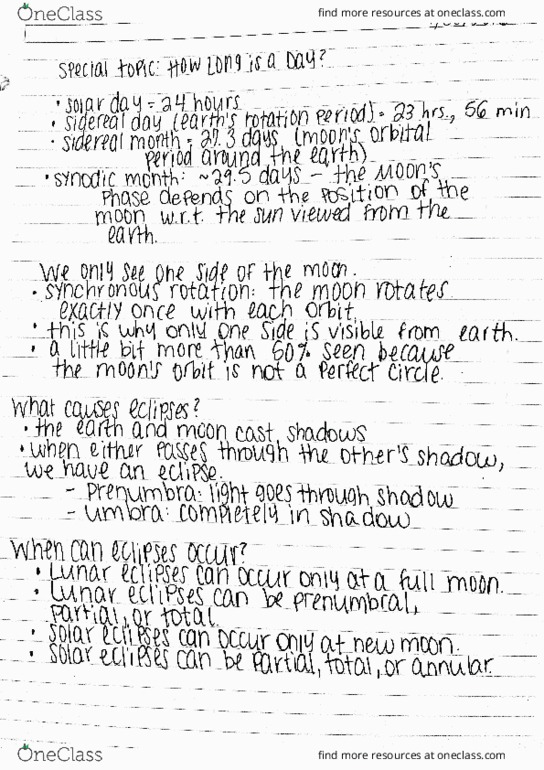 OneClass
find more resources at oneclass.com
special topic: How Long is a Day?
• solar day = 24 hours
• sidereal day (earth's rotation period) = 23 hrs., 56 min
• sidereal month = 27.3 days (moon's orbital
period around the earth)
• synodic month: ~29.5 days – the Moon's
Phase depends on the position of the
moon w.r.t. the sun viewed from the
earth.
We only see one side of the moon.
• synchronous rotation: the moon rotates
exactly once with each orbit.
• this is why only one side is visible from earth.
• a little bit more than 50% seen because
the moon's orbit is not a perfect circle.
What causes eclipses?
• the earth and moon cast shadows
• when either passes through the other's shadow,
we have an eclipse.
- prenumbra: light goes through shadow
- umbra: completely in shadow
When can eclipses occur?
• Lunar eclipses can occur only at a full moon.
• Lunar eclipses can be prenumbral,
partial, or total.
• solar eclipses can occur only at new moon.
• solar eclipses can be partial, total, or annular.
OneClass
find more resources at oneclass.com